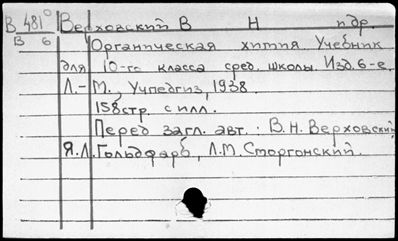 В 481° Верховский В Н и др.
В 6 Органическая химия Учебник
для 10-го класса сред. школы. Изд. 6-е.
Л.-М., Учпедгиз, 1938.
158стр. с илл.
Перед загл. авт.: В.Н. Верховский
Я.Л. Гольдфарб, Л.М. Сморгонский.